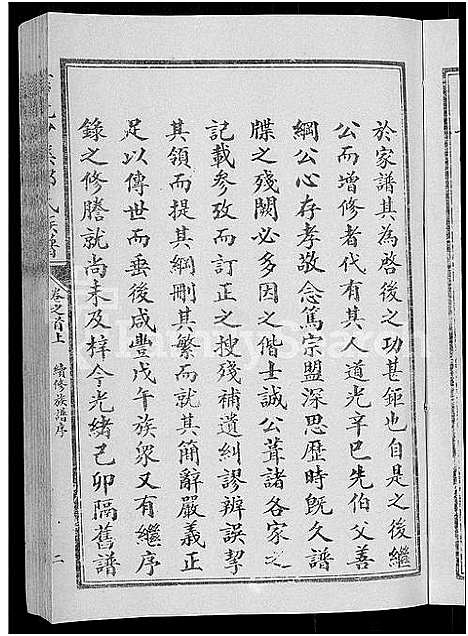 於家譜其為啓後之功甚鉅也自是之後繼
公而增修者代有其人道光辛巳先伯父善
綱公心存孝敬念篤宗盟深思歷時既久譜
牒之殘闕必多因之偕士誠公葺諸各家之
記載參攷而訂正之搜殘補遺糾謬辨誤挈
其領而提其綱刪其繁而就其簡辭嚴義正
足以傳世而垂後咸豐戊午族衆又有繼序
錄之修謄就尚未及梓今光緒己卯隔舊譜
氏族譜
卷之首上
續修族譜序
二
FamilySearch